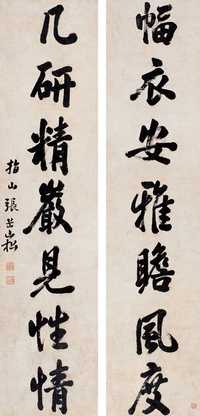 幅衣安雅瞻風度
几研精嚴見性情
指山張岳崧